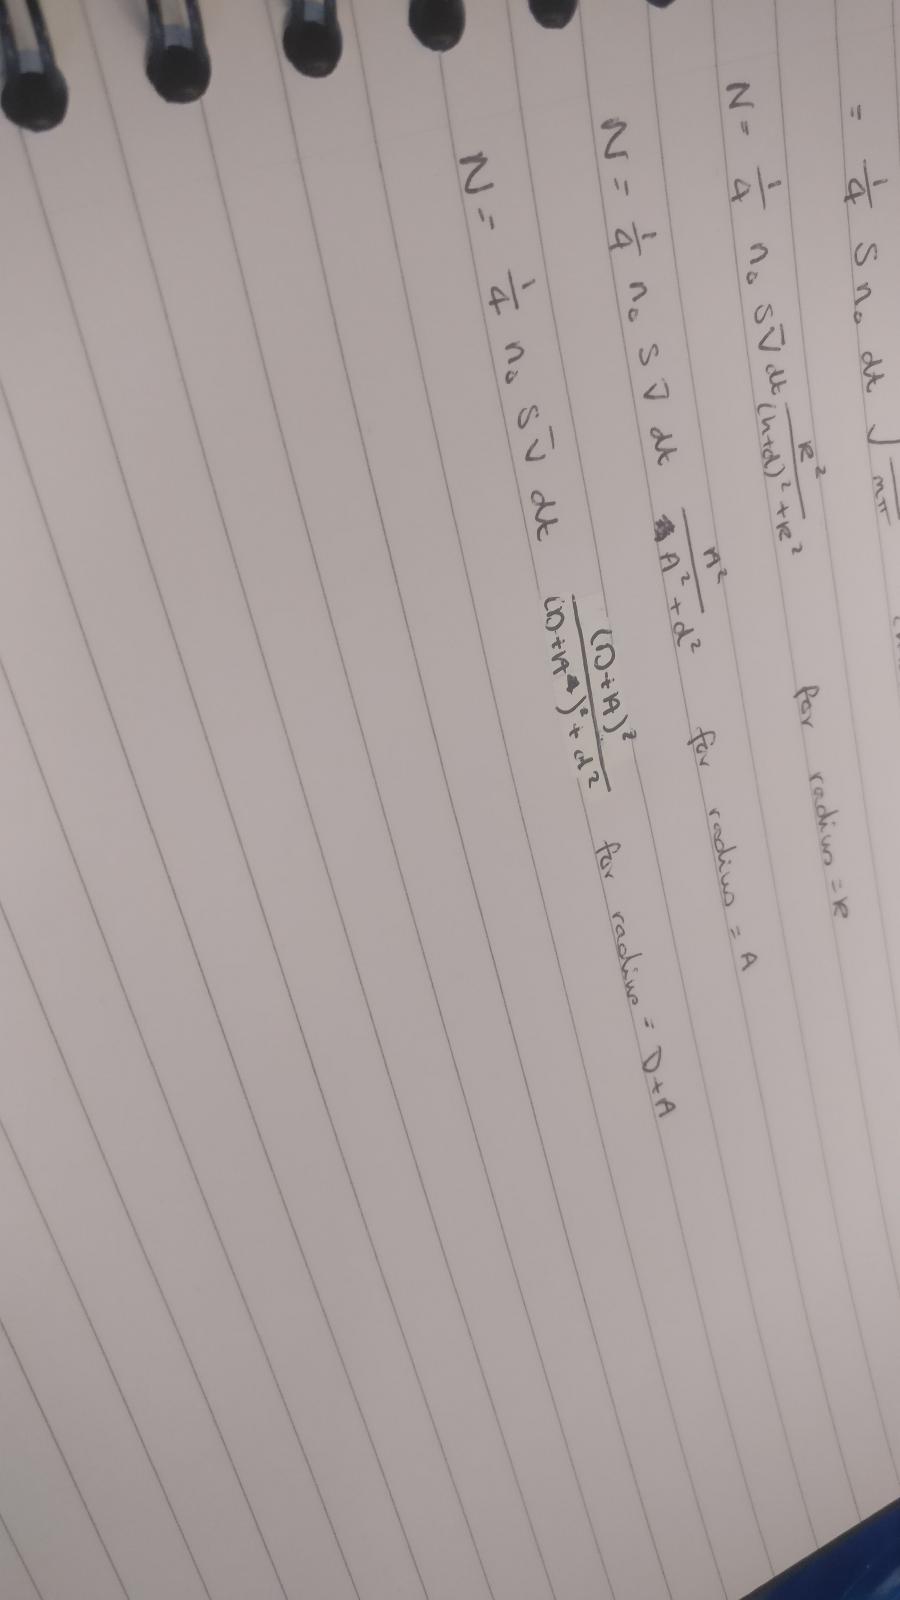 = 1/4 S n₀ dt √ / mπ
N = 1/4 n₀ S v̄ dt R² / (h+d)² + R² for radius = R
N = 1/4 n₀ S v̄ dt A² / A² + d² for radius = A
N = 1/4 n₀ S v̄ dt (D+A)² / (D+A)² + d² for radius = D+A